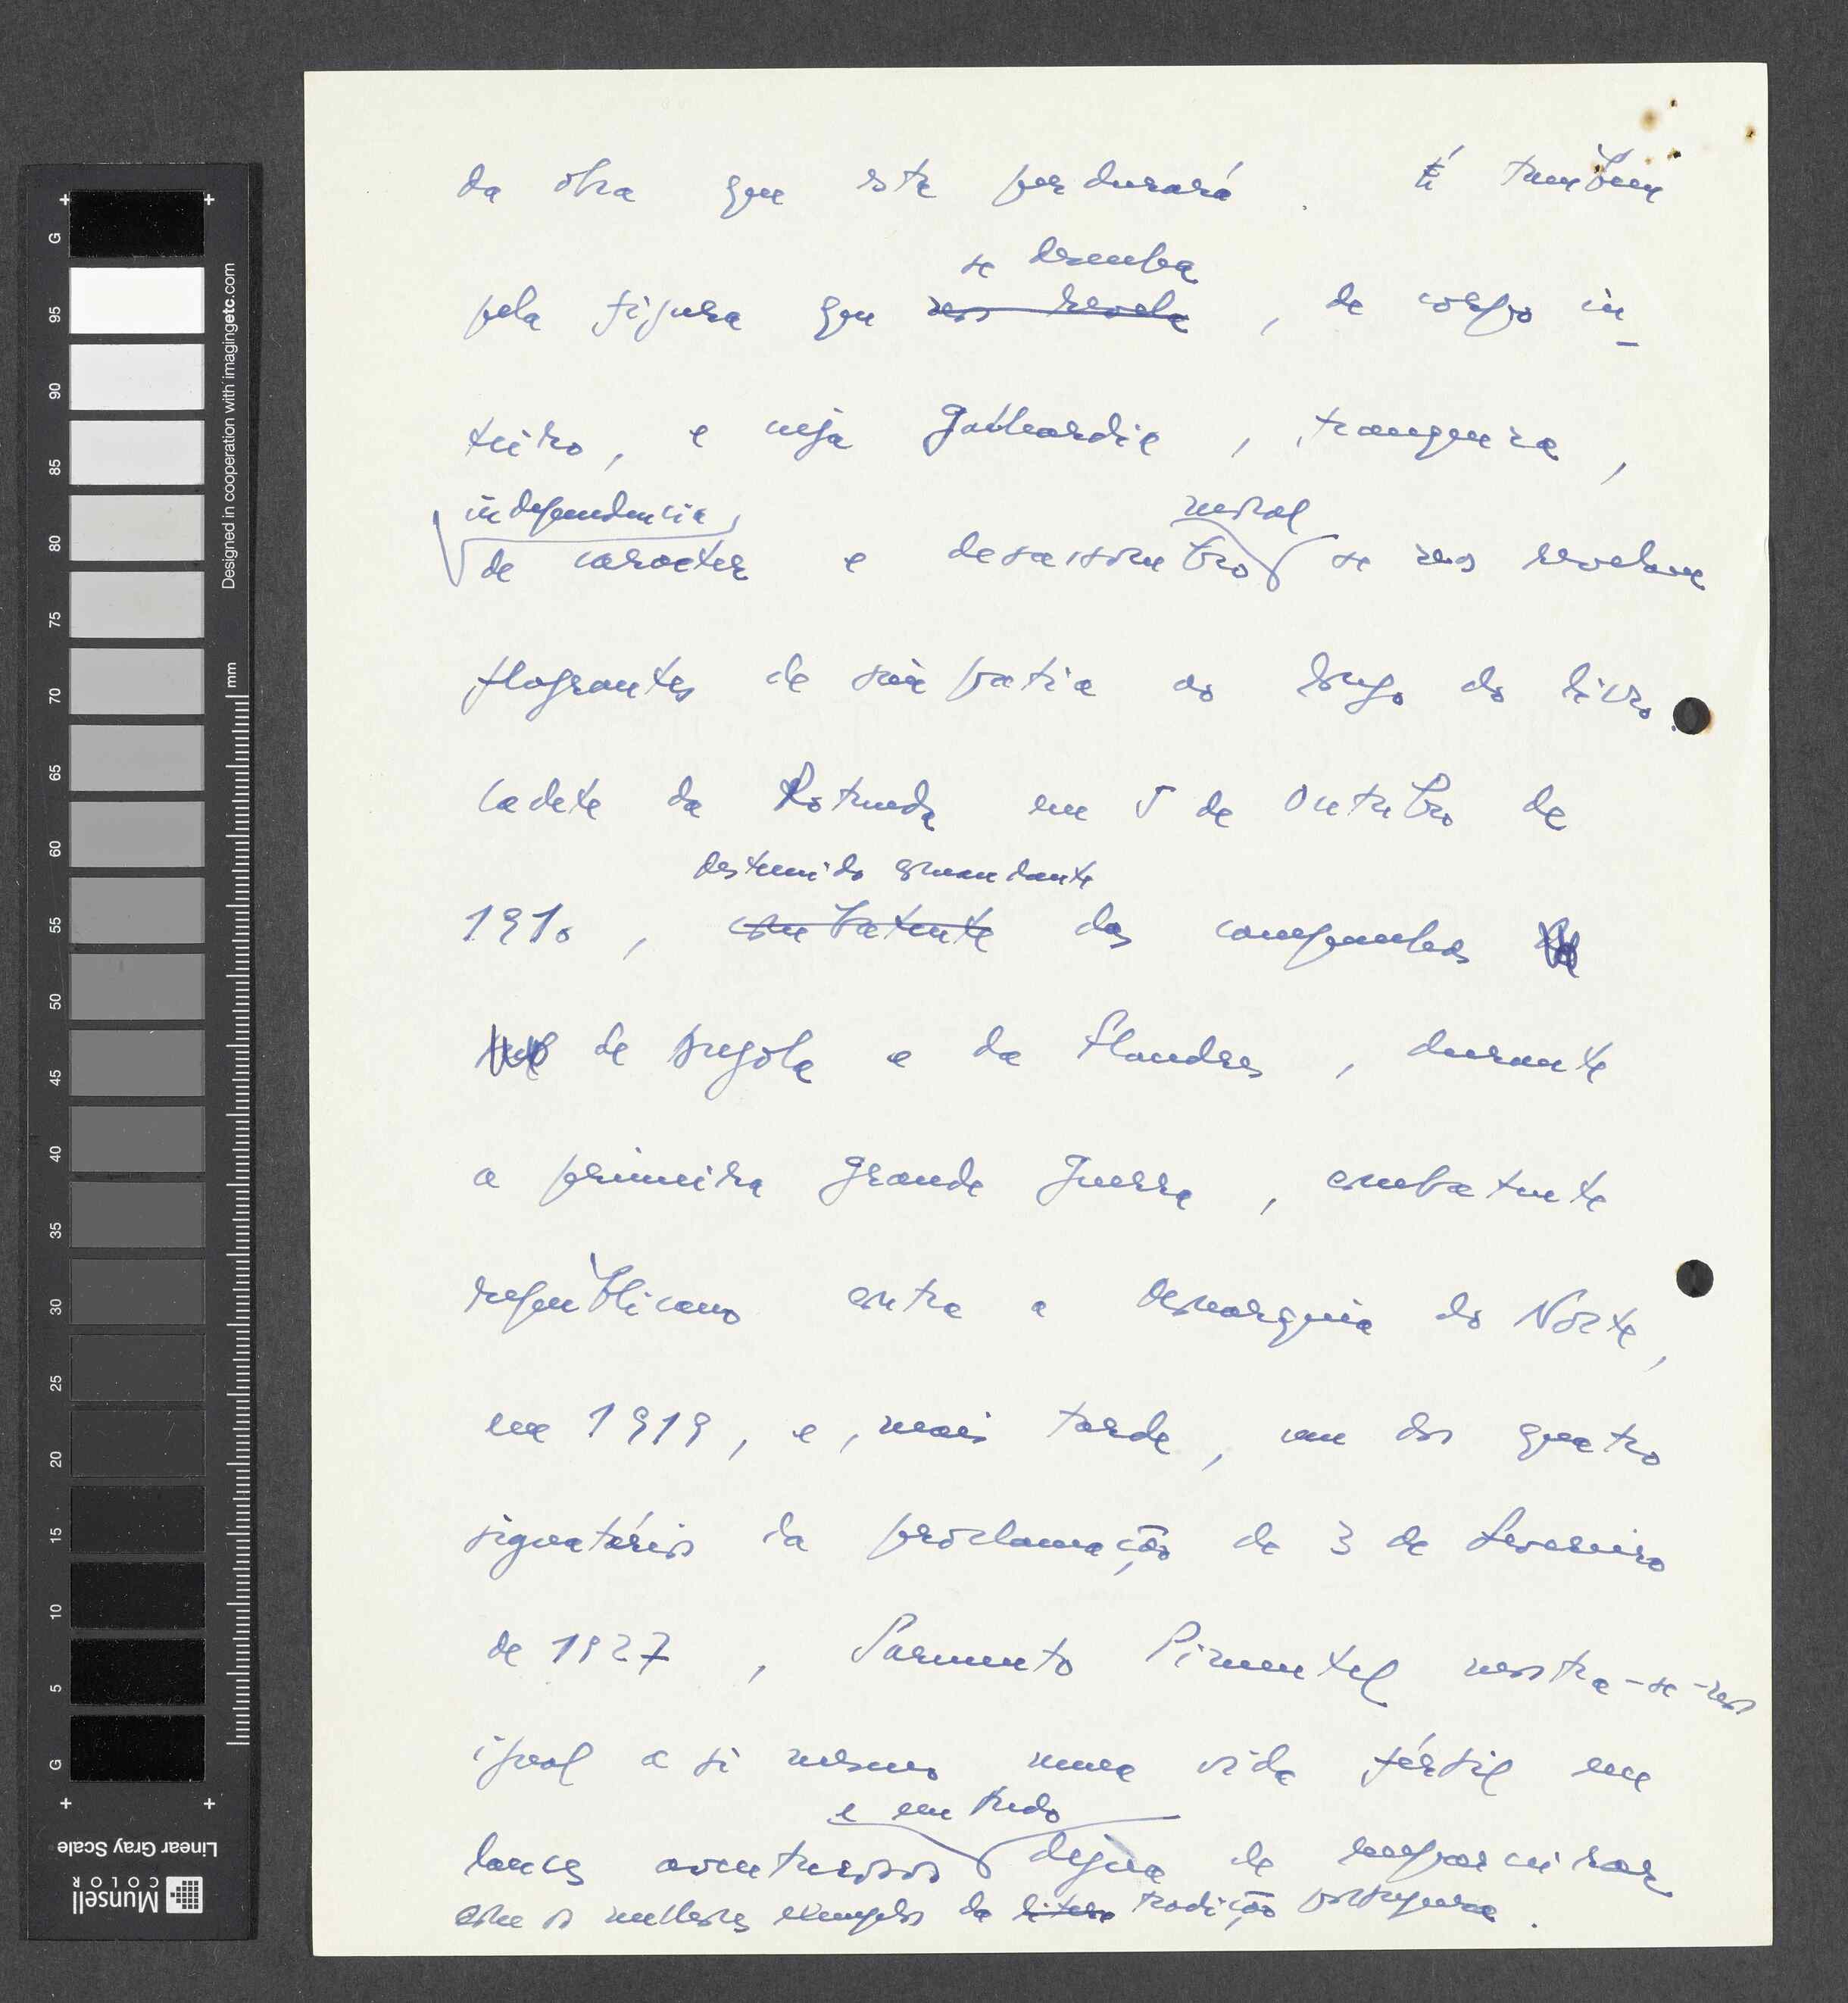 da obra que esta perdurará. É também
se desenha
pela figura que nos revela, de corpo in-
teiro, e cuja galhardia, franqueza,
independencia,
moral
de caracter e desassombro se nos revelam
flagrantes de simpatia ao longo do livro.
Cadete da Rotunda em 5 de Outubro de
destemido comandante
1910, combatente das campanhas
de Angola e da Flandres, durante
a primeira grande guerra, combatente
republicano contra a monarquia do Norte,
em 1919, e, mais tarde, um dos quatro
signatários da proclamação de 3 de Fevereiro
de 1927, Sarmento Pimentel mostra-se-nos
igual a si mesmo numa vida fértil em
e em tudo
lances aventurosos digna de emparceirar
com os melhores exemplos da litera tradição portuguesa.
G 95 90 85 80 75 70 65 60 55 50 45 40 35 30 25 20 15 10 5 G
mm
Designed in cooperation with imagingetc.com
Linear Gray Scale
Munsell
COLOR